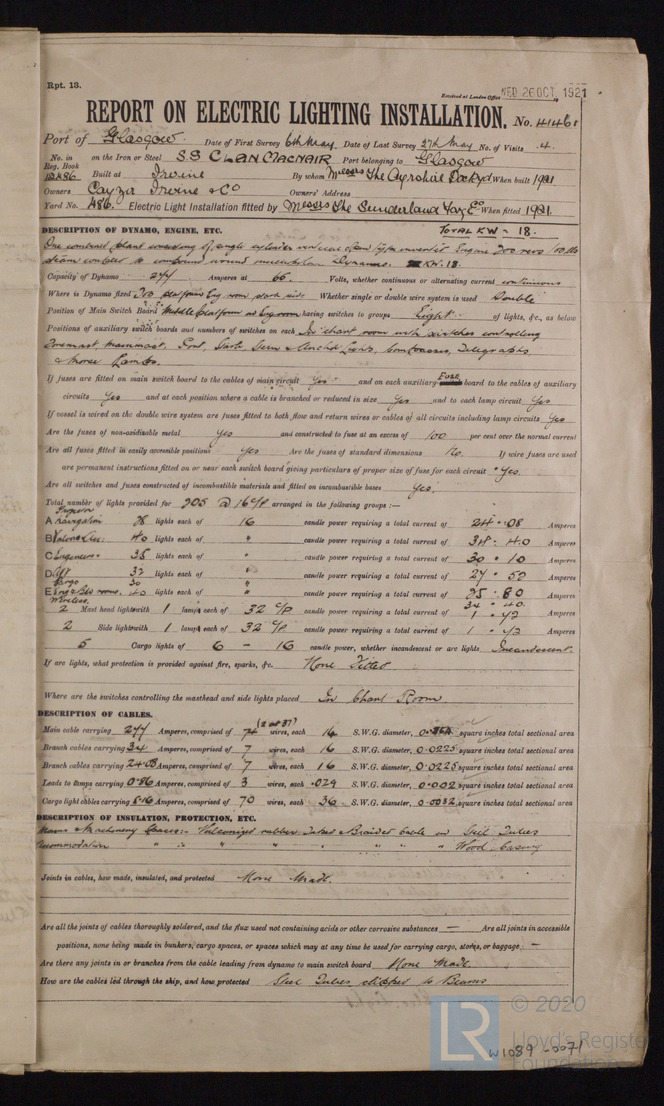 Rpt. 13.
Received at London Office WED. 26 OCT. 1921
REPORT ON ELECTRIC LIGHTING INSTALLATION. No. 41461
Port of Glasgow. Date of First Survey 6th May Date of Last Survey 27th May No. of Visits 4.
No. in Reg. Book on the Iron or Steel S.S CLAN MACNAIR Port belonging to Glasgow
Built at Irvine By whom Messrs The Ayrshire Dockyd When built 1921
Owners Cayzer Irvine & Co Owners' Address
Yard No. 486. Electric Light Installation fitted by Messrs The Sunderland Forge Co When fitted 1921.
DESCRIPTION OF DYNAMO, ENGINE, ETC. TOTAL KW - 18.
One combined plant consisting of single cylinder vertical open type inverted Engine 200 revs 100 lbs
steam coupled to compound wound Dynamo. KW. 18.
Capacity of Dynamo 277 Amperes at 65. Volts, whether continuous or alternating current continuous
Where is Dynamo fixed platform Eng room Whether single or double wire system is used Double
Position of Main Switch Board Middle platform in Eng room having switches to groups Eight of lights, &c., as below
Positions of auxiliary switch boards and numbers of switches on each In chart room with switches controlling
Foremast, Mainmast, Port, Starb. Stern & Anchor Lights, Compasses, Telegraphs
& Morse Lamps.
If fuses are fitted on main switch board to the cables of main circuit Yes and on each auxiliary Fuse board to the cables of auxiliary
circuits Yes and at each position where a cable is branched or reduced in size Yes and to each lamp circuit Yes
If vessel is wired on the double wire system are fuses fitted to both flow and return wires or cables of all circuits including lamp circuits Yes
Are the fuses of non-oxidizable metal Yes and constructed to fuse at an excess of 100 per cent over the normal current
Are all fuses fitted in easily accessible positions Yes Are the fuses of standard dimensions No. If wire fuses are used
are permanent instructions fitted on or near each switch board giving particulars of proper size of fuse for each circuit Yes.
Are all switches and fuses constructed of incombustible materials and fitted on incombustible bases Yes.
Total number of lights provided for 205 @ 16 C/P arranged in the following groups :—
A Navigation 28 lights each of 16 candle power requiring a total current of 24.08 Amperes
B Saloon &c: 40 lights each of " candle power requiring a total current of 34.40 Amperes
C Engineers 35 lights each of " candle power requiring a total current of 30.10 Amperes
D Aft 32 lights each of " candle power requiring a total current of 27.52 Amperes
Cargo 30 25.80
E Eng & Blr rooms. 40 lights each of " candle power requiring a total current of 34.40 Amperes
Wireless.
2 Mast head light with 1 lamps each of 32 C/P candle power requiring a total current of 1.72 Amperes
2 Side light with 1 lamps each of 32 C/P candle power requiring a total current of 1.72 Amperes
5 Cargo lights of 6 - 16 candle power, whether incandescent or arc lights Incandescent.
If arc lights, what protection is provided against fire, sparks, &c. None Fitted
Where are the switches controlling the masthead and side lights placed In Chart Room
DESCRIPTION OF CABLES.
Main cable carrying 277 Amperes, comprised of 74 (2 at 37) wires, each 14 S.W.G. diameter, square inches total sectional area
Branch cables carrying 34 Amperes, comprised of 7 wires, each 16 S.W.G. diameter, 0.0225 square inches total sectional area
Branch cables carrying 24.08 Amperes, comprised of 7 wires, each 16 S.W.G. diameter, 0.0225 square inches total sectional area
Leads to lamps carrying 0.86 Amperes, comprised of 3 wires, each .029 S.W.G. diameter, 0.002 square inches total sectional area
Cargo light cables carrying 5.16 Amperes, comprised of 70 wires, each 36 S.W.G. diameter, 0.0032 square inches total sectional area
DESCRIPTION OF INSULATION, PROTECTION, ETC.
Mains & Machinery Spaces :- Vulcanized rubber Taped & Braided Cable in Steel Tubes
Accommodation " " " " " " " " Wood Casing
Joints in cables, how made, insulated, and protected None Made.
Are all the joints of cables thoroughly soldered, and the flux used not containing acids or other corrosive substances — Are all joints in accessible
positions, none being made in bunkers, cargo spaces, or spaces which may at any time be used for carrying cargo, stores, or baggage —
Are there any joints in or branches from the cable leading from dynamo to main switch board None Made.
How are the cables led through the ship, and how protected Steel Tubes clipped to Beams
LR © 2020
Lloyd's Register
Foundation
W1089-0071